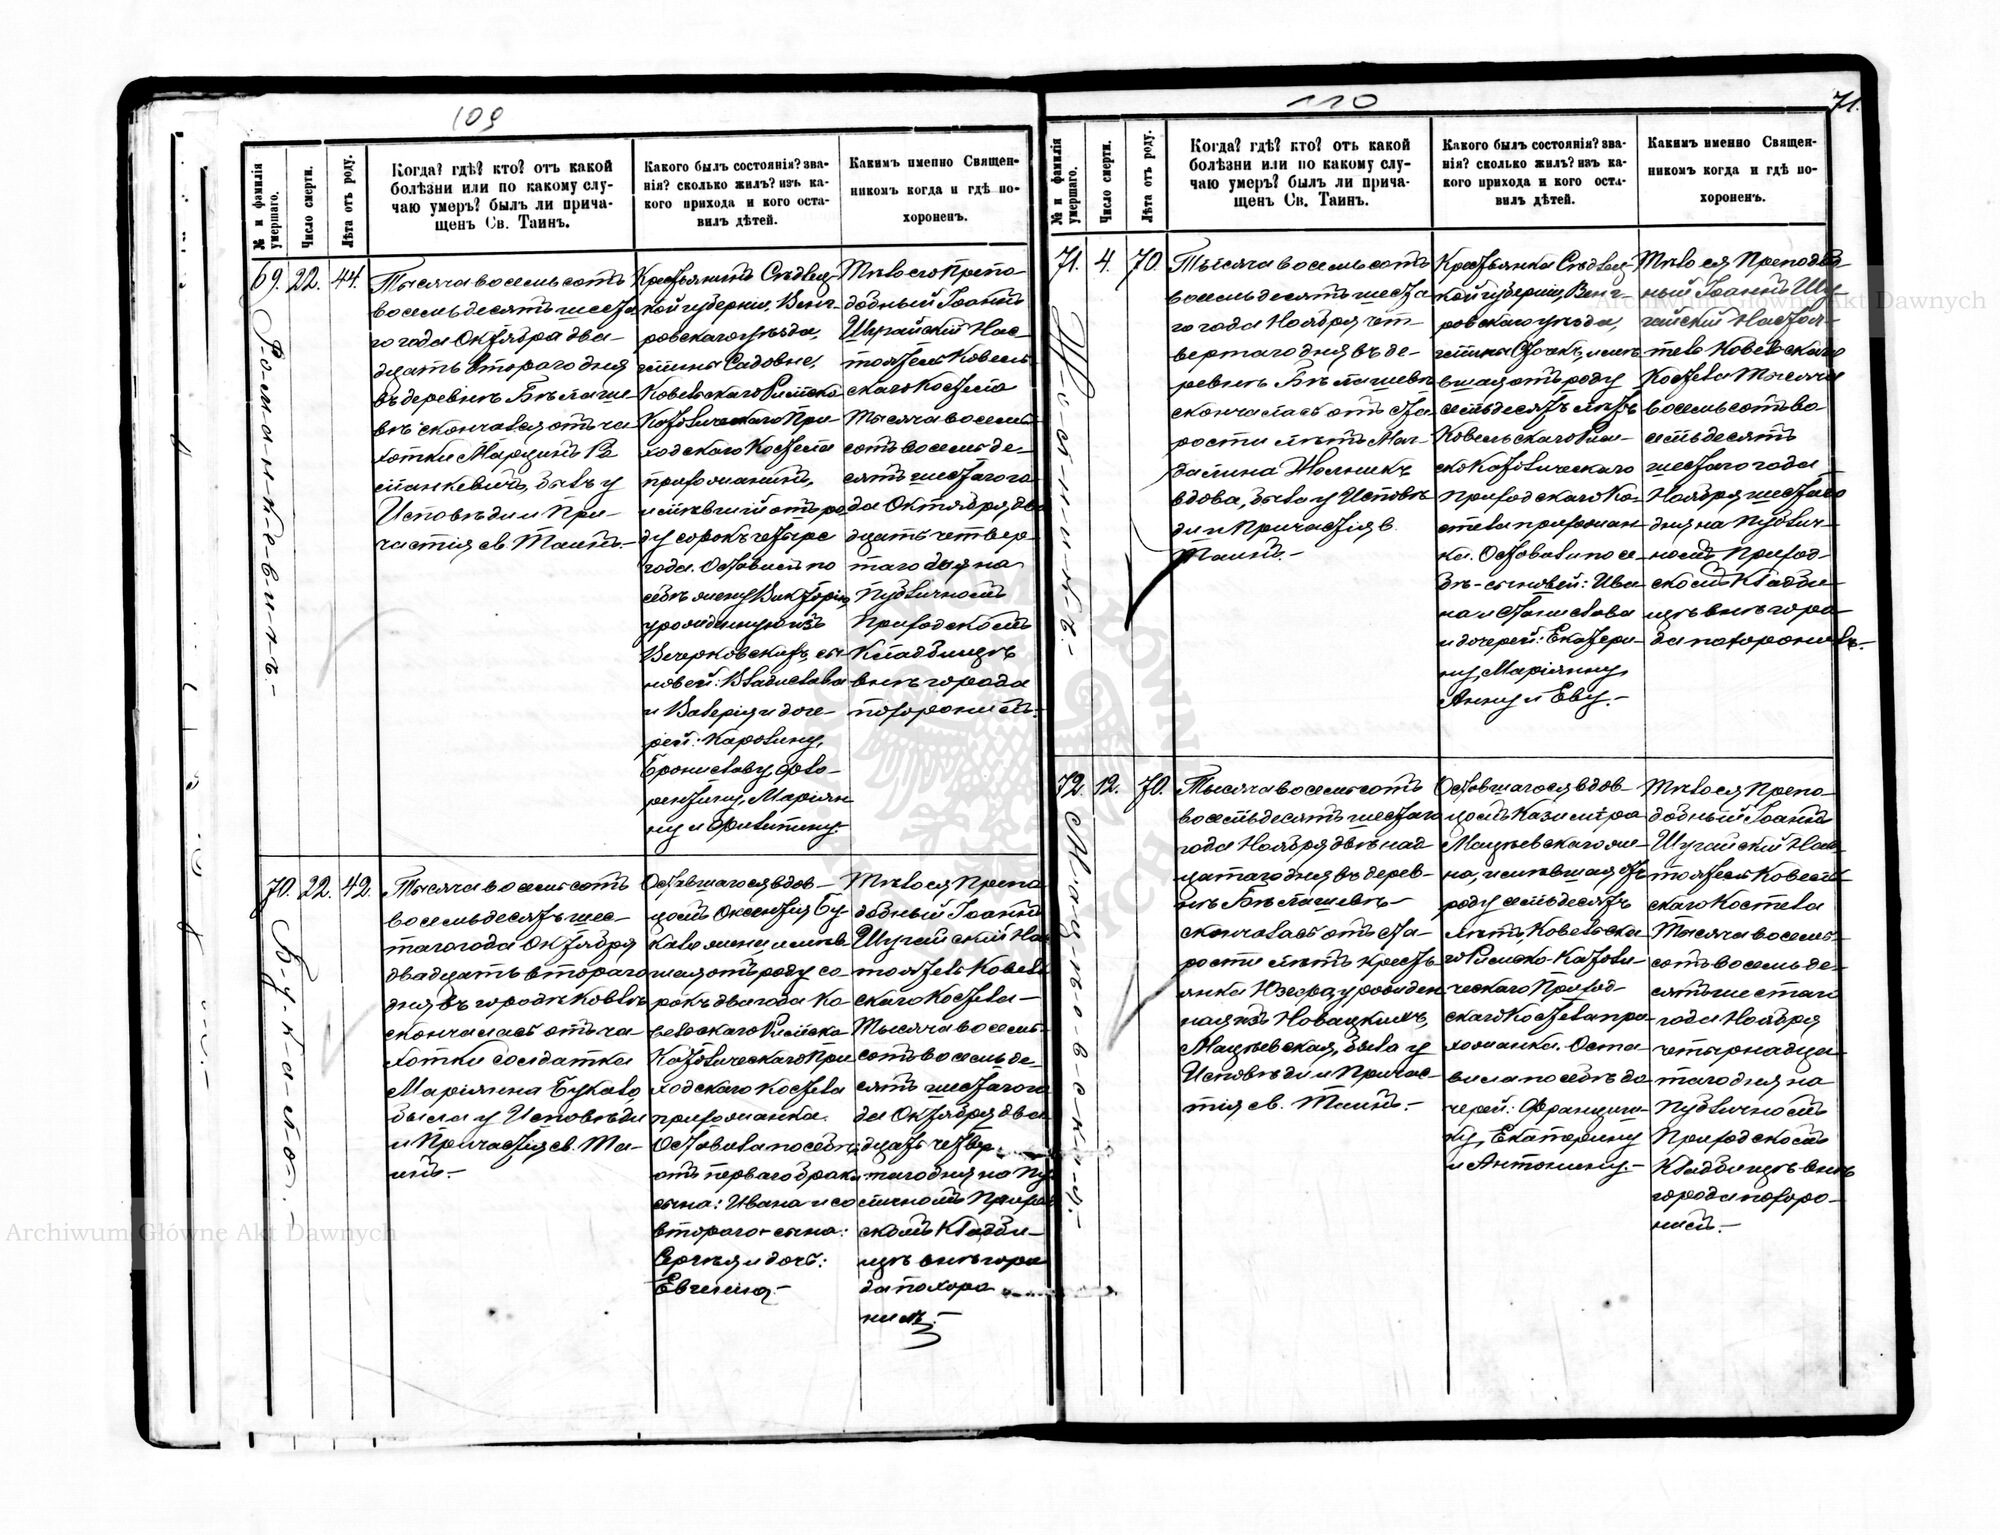 109
№ и фамилія умершаго.
Число смерти.
Лѣта отъ роду.
Когда? гдѣ? кто? отъ какой
болѣзни или по какому слу-
чаю умеръ? былъ ли прича-
щенъ Св. Таинъ.
Какого былъ состоянія? зва-
нія? сколько жилъ? изъ ка-
кого прихода и кого оста-
вилъ дѣтей.
Какимъ именно Священ-
никомъ когда и гдѣ по-
хороненъ.
69. 22. 44.
Романкевичъ.-
Тысяча восемьсотъ
восемьдесятъ шеста
го года Октября два-
дцать втораго дня
въ деревнѣ Бѣлаше
вѣ скончался отъ ча
хотки Марцинъ Ро
манкевичъ, былъ у
Исповѣди и При-
частія св. Таинъ.-
Крестьянинъ Сѣдлец-
кой губерніи, Венг-
ровскаго уѣзда,
гмины Садовне,
Ковельскаго Римско
Католическаго При-
ходскаго Костела
прихожанинъ,
имѣвшій отъ ро
ду сорокъ четыре
года. Оставилъ по
себѣ жену Викторію,
урожденную изъ
Вечерковскихъ, сы-
новей: Владислава
и Валерія и доче-
рей: Каролину,
Брониславу, Фло-
рентину, Маріян
ну и Филипину.
Тѣло его Препо-
добный Іоаннъ
Шугайскій Нас-
тоятель Ковель-
скаго Костела
Тысяча восемь
сотъ восемьде-
сятъ шестаго го
да Октября два
дцать четвер
таго дня на
Публичномъ
Приходскомъ
Кладбищѣ
внѣ города
похоронилъ.
70. 22. 42.
Букало.-
Тысяча восемьсотъ
восемьдесятъ шес-
таго года Октября
двадцать втораго
дня въ городѣ Ковлѣ
скончалась отъ ча
хотки солдатка
Маріянна Букало,
была у Исповѣди
и Причастія св. Та-
инъ.-
Оставшагося вдов-
цомъ Оксентія Бу-
кало жена, имѣв-
шая отъ роду со-
рокъ два года Ко-
вельскаго Римско
Католическаго При
ходскаго Костела
прихожанка.
Оставила по себѣ
отъ перваго брака
сына: Ивана и со
втораго - сына:
Сергѣя и дочь:
Евгенію.-
Тѣло ея Препо
добный Іоаннъ
Шугайскій На
тоятель Ковель
скаго Костела-
Тысяча восемь-
сотъ восемьде-
сятъ шестаго го
да Октября два
дцать четвер
таго дня на Пу
бличномъ Приход
скомъ Кладби-
щѣ внѣ горо
да похоро
нилъ.-
110
71.
№ и фамилія умершаго.
Число смерти.
Лѣта отъ роду.
Когда? гдѣ? кто? отъ какой
болѣзни или по какому слу-
чаю умеръ? былъ ли прича-
щенъ Св. Таинъ.
Какого былъ состоянія? зва-
нія? сколько жилъ? изъ ка-
кого прихода и кого оста-
вилъ дѣтей.
Какимъ именно Священ-
никомъ когда и гдѣ по-
хороненъ.
71. 4. 70.
Тысяча восемьсотъ
восемьдесятъ шеста
го года Ноября чет-
вертаго дня въ де-
ревнѣ Бѣлашевѣ
скончалась отъ ста
рости лѣтъ Маг-
далина
вдова, была у Исповѣ
ди и Причастія св.
Таинъ.-
Крестьянка Сѣдлец-
кой губерніи, Венг-
ровскаго уѣзда,
гмины имѣ
вшая отъ роду
семьдесятъ лѣтъ
Ковельскаго Рим-
ско Католическаго
Приходскаго Ко-
стела прихожан
ка. Оставила по се-
бѣ - сыновей: Ива
на и Станислава
и дочерей: Екатери
ну, Маріянну,
Анну и Еву.-
Тѣло ея Преподоб
ный Іоаннъ Шу-
гайскій Настоя-
тель Ковельскаго
Костела Тысяча
восемьсотъ во
семьдесятъ
шестаго года
Ноября шестаго
дня на Публич-
номъ Приход-
скомъ Кладби-
щѣ внѣ горо-
да похоронилъ.-
72. 12. 70.
Мацѣевская.-
Тысяча восемьсотъ
восемьдесятъ шестаго
года Ноября двѣнад
цатаго дня въ дерев-
нѣ Бѣлашевѣ-
скончалась отъ ста-
рости лѣтъ кресть
янка Юзефа, урожден
ная изъ Новацкихъ,
Мацѣевская, была у
Исповѣди и Причас-
тія св. Таинъ.-
Оставшагося вдов-
цомъ Казиміра
Мацѣевскаго же-
на, имѣвшая отъ
роду семьдесятъ
лѣтъ, Ковельска
го Римско-Католи-
ческаго Приход-
скаго Костела при
хожанка. Оста
вила по себѣ до
черей: Францишка
ку, Екатерину
и Антонину.-
Тѣло ея Препо-
добный Іоаннъ
Шугайскій Нас
тоятель Ковель
скаго Костела
Тысяча восемь-
сотъ восемьде-
сятъ шестаго
года Ноября
четырнадца
таго дня на
Публичномъ
Приходскомъ
Кладбищѣ внѣ
города похоро-
нилъ.-
Archiwum Główne Akt Dawnych
Archiwum Główne Akt Dawnych